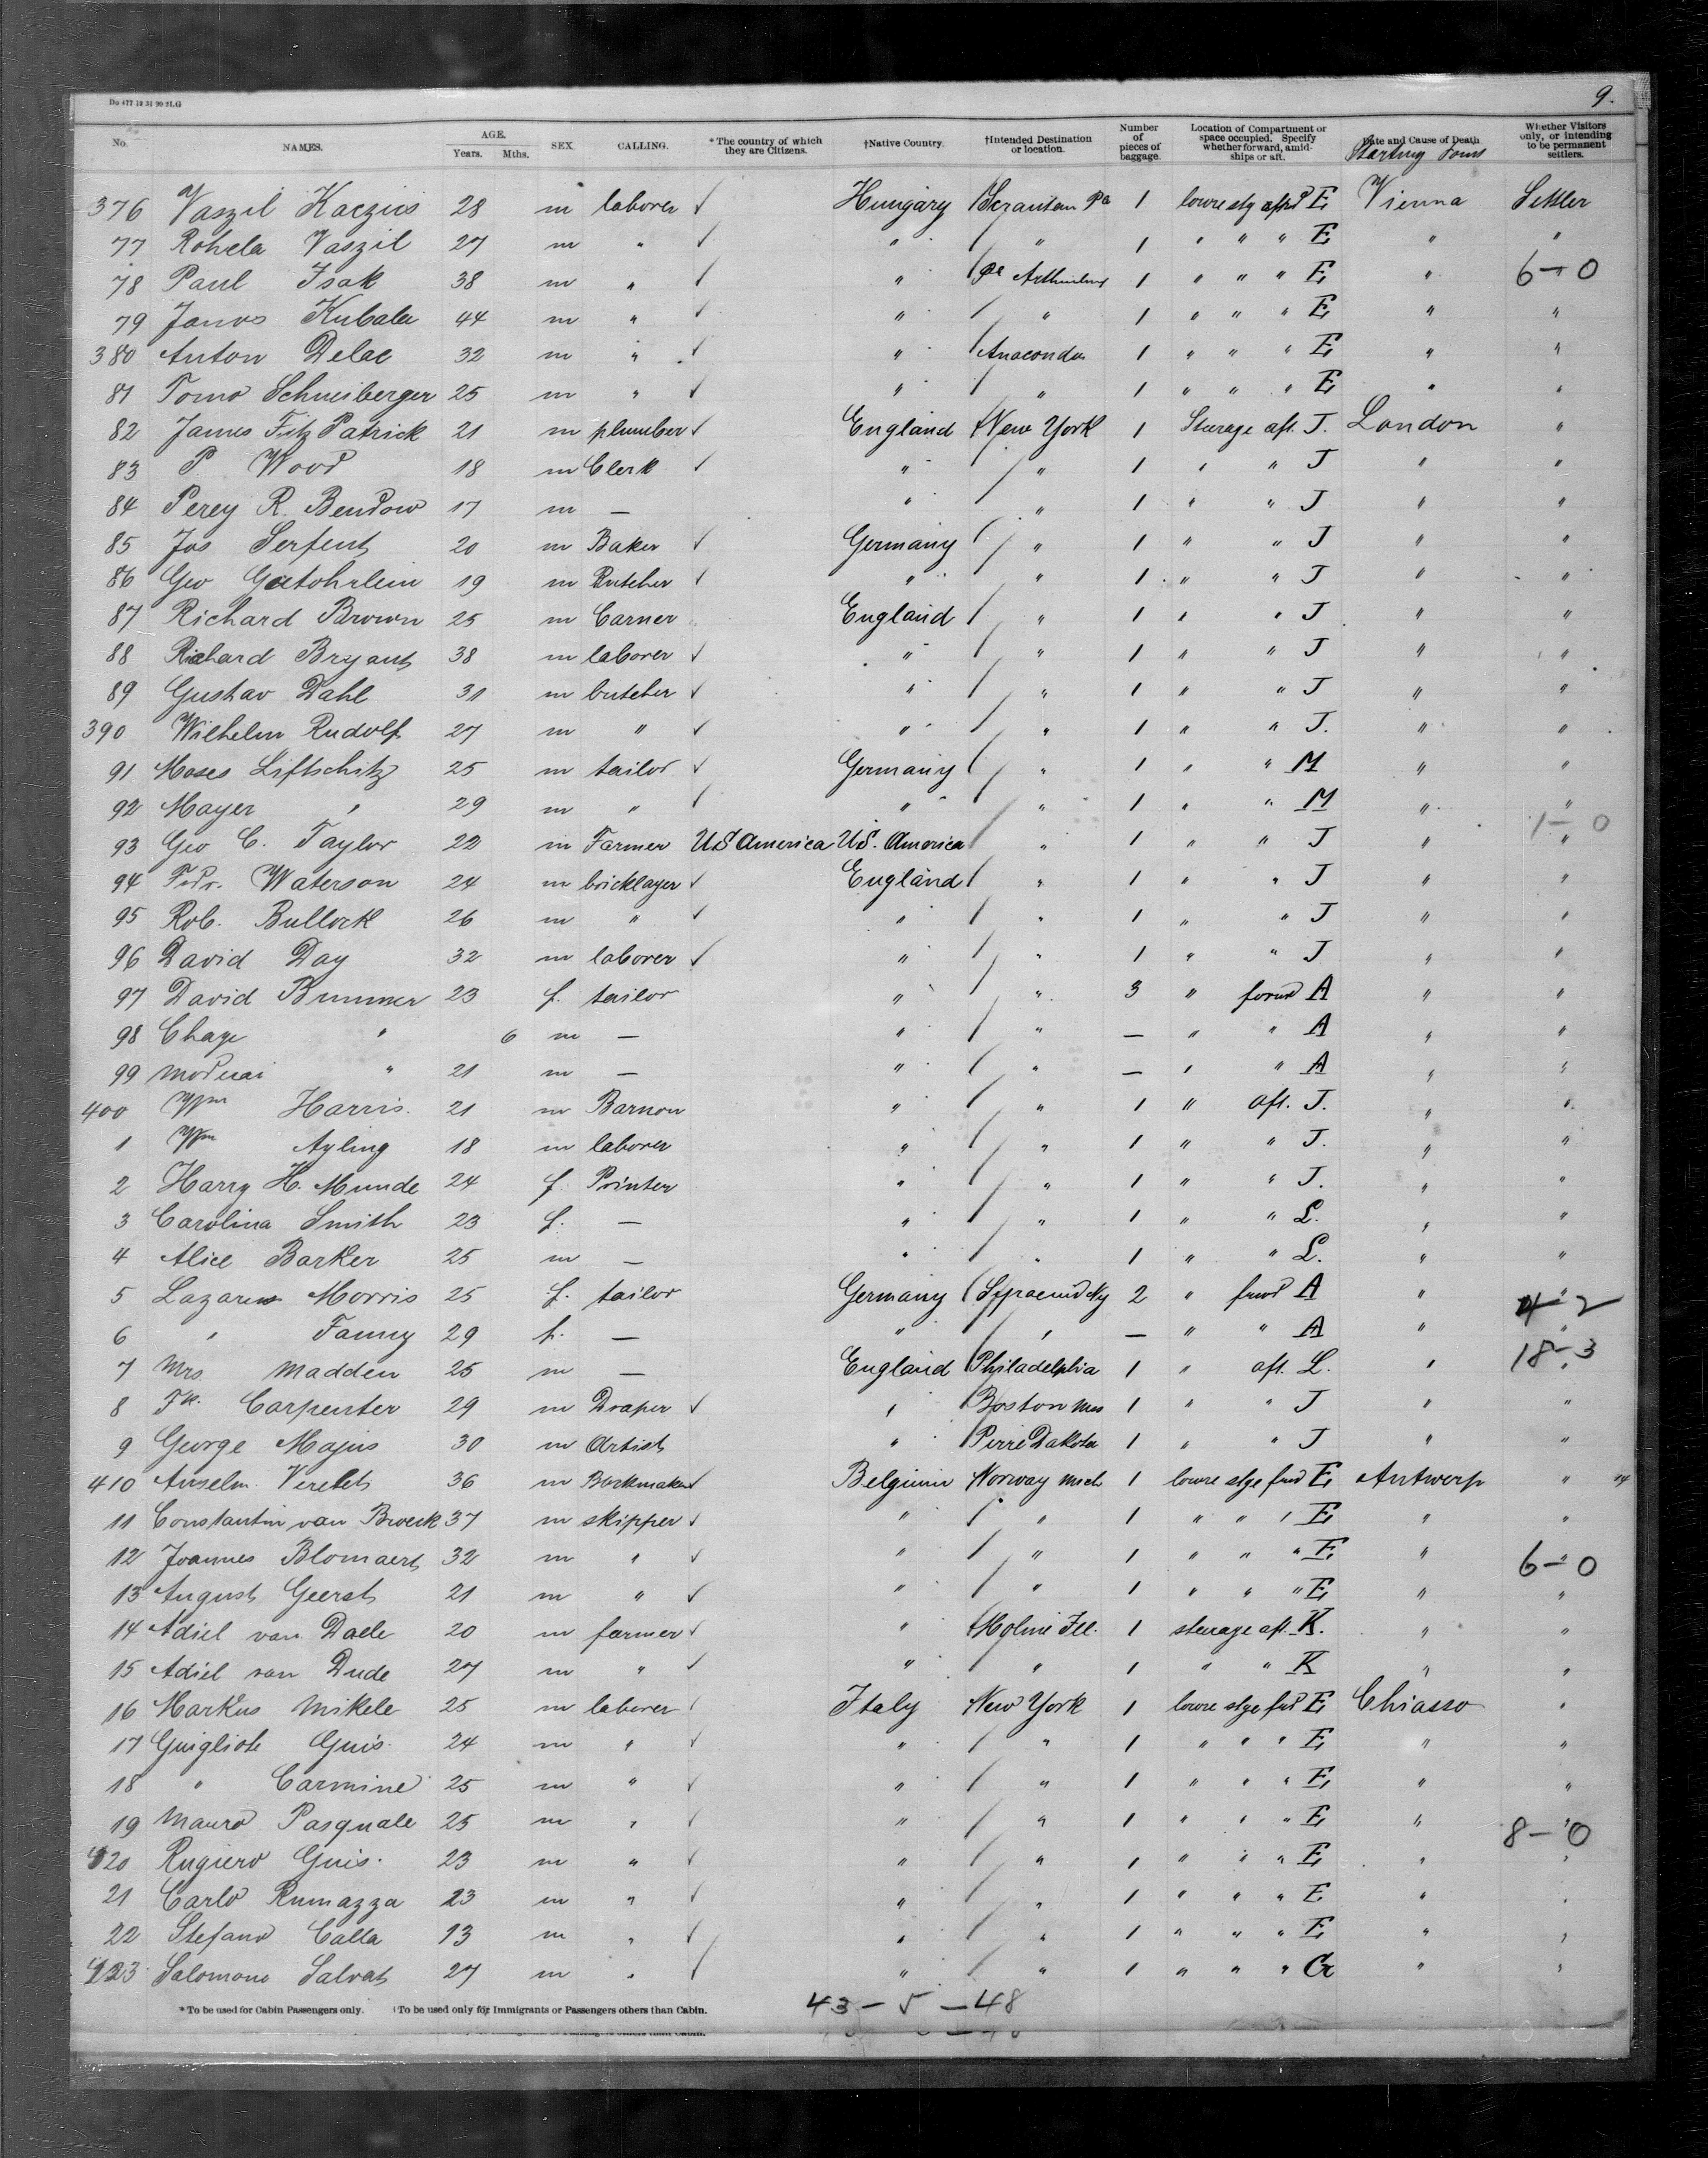 9.
Do 477 12 31 90 2LG
No. NAMES. AGE. Years. Mths. SEX. CALLING. *The country of which they are Citizens. †Native Country. †Intended Destination or location. Number of pieces of baggage. Location of Compartment or space occupied. Specify whether forward, amidships or aft. Date and Cause of Death Starting Whether Visitors only, or intending to be permanent settlers.
376 Vaszil 28 m laborer ✓ Hungary Pa 1 lowre stg E Vienna Settler
77 Rohela Vaszil 27 m " ✓ " " 1 " " " E " "
78 Paul Isak 38 m " ✓ " Pa 1 " " " E " 6-0
79 Janos Kubala 44 m " ✓ " " 1 " " " E " "
380 Anton Delac 32 m " ✓ " Anaconda 1 " " " E " "
81 Tomo Schneiberger 25 m " ✓ " " 1 " " " E " "
82 James Fitz Patrick 21 m plumber ✓ England New York 1 Sturage aft. J. London "
83 P Wood 18 m Clerk ✓ " " 1 " " J " "
84 Percy R. Bendow 17 m — " " 1 " " J " "
85 Jos Serfent 20 m Baker ✓ Germany " 1 " " J " "
86 Geo 19 m Butcher ✓ " " 1 " " J " "
87 Richard Brown 25 m Carner England " 1 " " J " "
88 Richard Bryant 38 m laborer ✓ " " 1 " " J " "
89 Gustav Dahl 31 m butcher ✓ " " 1 " " J " "
390 Wilhelm Rudolf 27 m " ✓ " " 1 " " J. " "
91 Moses Liftschitz 25 m tailor ✓ Germany " 1 " " M " "
92 Mayer " 29 m " ✓ " " 1 " " M " "
1-0
93 Geo C. Taylor 22 m Farmer US America US. America " 1 " " J " "
94 Waterson 24 m bricklayer ✓ England " 1 " " J " "
95 Rob. Bullock 26 m " ✓ " " 1 " " J " "
96 David Day 32 m laborer ✓ " " 1 " " J " "
97 David Brummer 23 f. tailor " " 3 " forwd A " "
98 Chaye " 6 m — " " — " " A " "
99 " 21 m — " " — " " A " "
400 Wm Harris. 21 m Barnon " " 1 " aft. J. " "
1 Wm Ayling 18 m laborer " " 1 " " J. " "
2 Harry H. Munde 24 f. Printer " " 1 " " J. " "
3 Carolina Smith 23 f. — " " 1 " " L. " "
4 Alice Barker 25 m — " " 1 " " L. " "
5 Lazarus Morris 25 f. tailor Germany 2 " A " "
4-2
6 " Fanny 29 f. — " " — " " A " "
7 Mrs. Madden 25 m — England Philadelphia 1 " aft. L. " 18-3
8 Fk. Carpenter 29 m Draper ✓ " Boston Mas 1 " " J " "
9 George Majus 30 m Artist " Pirre Dakota 1 " " J " "
410 Anselm Verelst 36 m ✓ Belgium Norway Mich 1 lowre stge fwd E Antwerp " "
11 Constantin van Broeck 37 m skipper ✓ " " 1 " " " E " "
12 Joannes Blomaert 32 m " ✓ " " 1 " " " E " 6-0
13 August Geerst 21 m " ✓ " " 1 " " " E " "
14 Adiel van Daele 20 m farmer ✓ " Moline Ill. 1 sturage aft. K. " "
15 Adiel van Dude 27 m " ✓ " " 1 " " K " "
16 Markus Mikele 25 m laborer ✓ Italy New York 1 lowre stge fwd E Chiasso "
17 Guigliote Guis. 24 m " ✓ " " 1 " " " E " "
18 " Carmine 25 m " ✓ " " 1 " " " E " "
19 Mauro Pasquale 25 m " ✓ " " 1 " " " E " 8-0
420 Rugiero Guis. 23 m " ✓ " " 1 " " " E " "
21 Carlo Rumazza 23 m " ✓ " " 1 " " " E " "
22 Stefano Calla 13 m " ✓ " " 1 " " " E " "
423 Salomone Salvat 27 m " ✓ " " 1 " " " G " "
*To be used for Cabin Passengers only. †To be used only for Immigrants or Passengers others than Cabin. 43-5-48